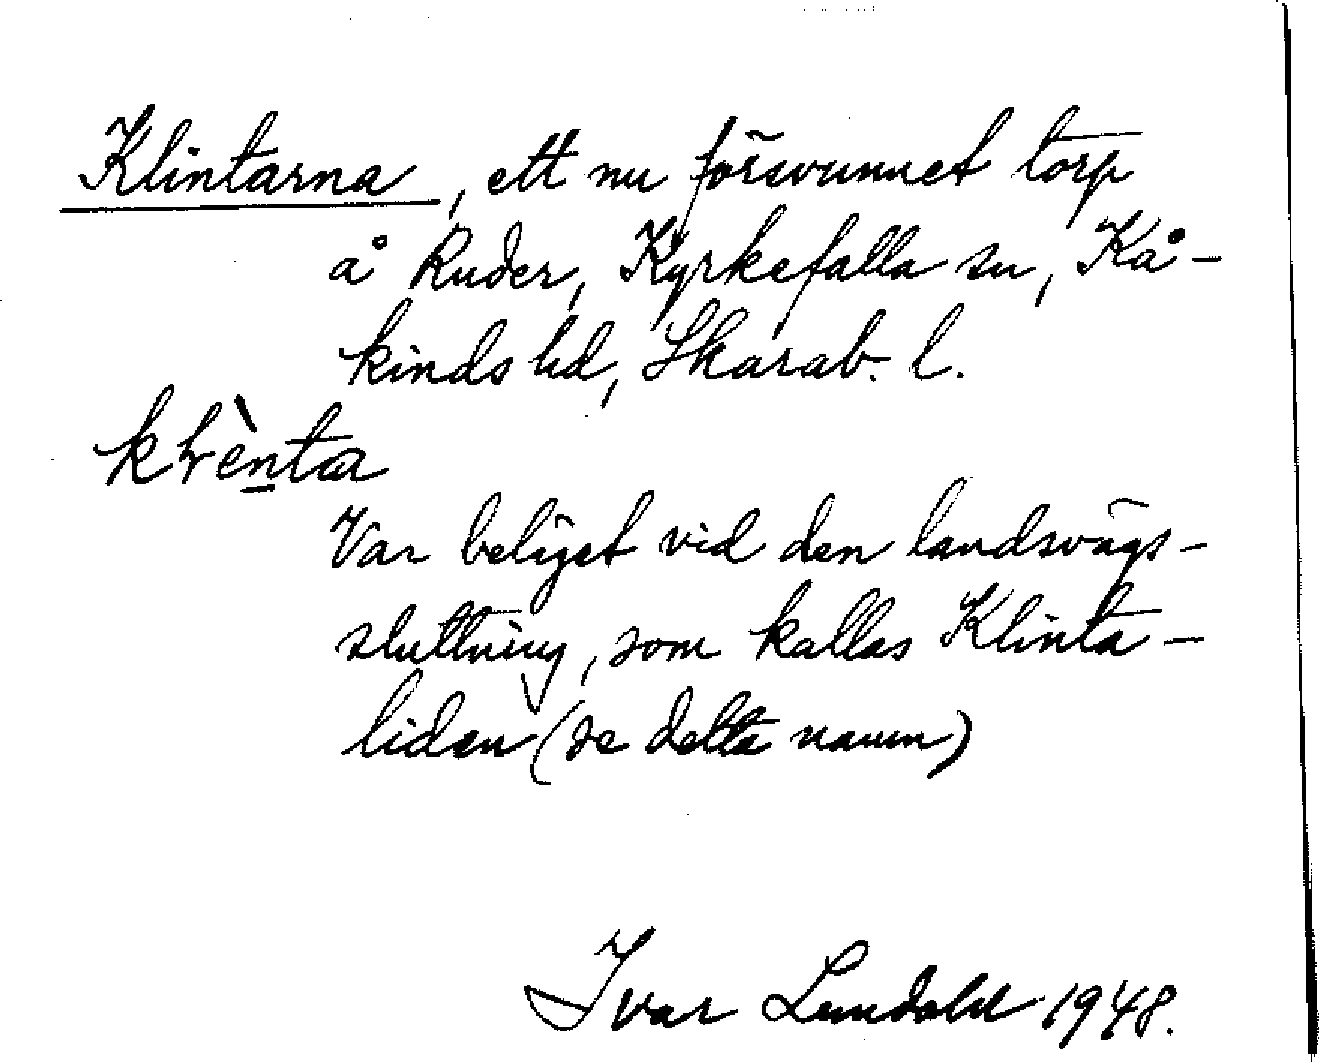 Klintarna, ett nu försvunnet torp
å Ruder, Kyrkefalla sn, Kå-
kinds hd, Skarab. l.
Var beläget vid den landsvägs-
sluttning, som kallas Klinta-
liden (se detta namn)
Ivar Lundahl 1948.